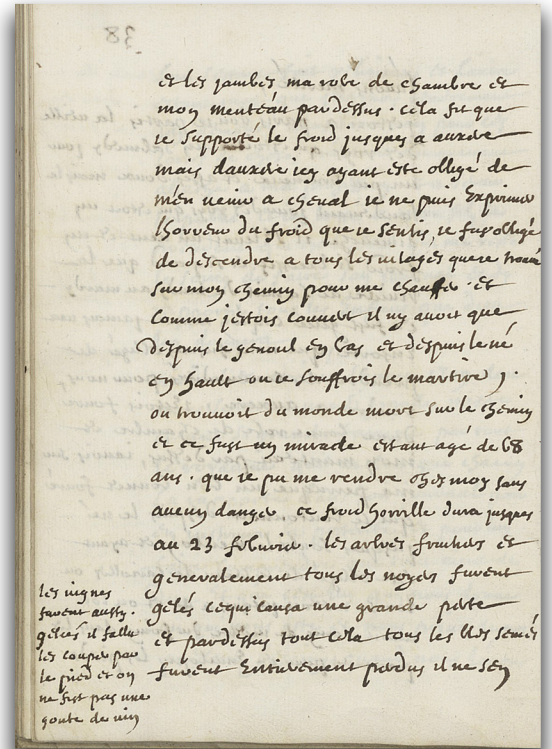 38
et les jambes ma robe de chambre et
mon menteau pardessus. cela fit que
ie supporté le froid jusques a auxere
mais dauxere icy ayant esté obligé de
m'en venir a cheval ie ne puis Exprimer
lhorreur du froid que ie sentis, ie fus obligé
de descendre a tous les vilages que ie trouvé
sur mon chemin pour me chauffer. et
comme j'estois couvert il ny avoit que
despuis le genoul en bas et despuis le né
en hault ou ie souffrois le martire).
on trouvoit du monde mort sur le chemin
et ce fust un miracle estant agé de 68
ans. que ie pu me rendre chez moy sans
aucun danger. ce froid horrible dura jusques
au 23 febvrier. les arbres fruitiers et
generalement tous les noyers furent
gelés ce qui causa une grande perte
et pardessus tout cela tous les bles semés
furent Entierement perdus il ne sen
les vignes
furent aussy.
gelées il fallu
les couper par
le pied et on
ne fist pas une
goute de vin